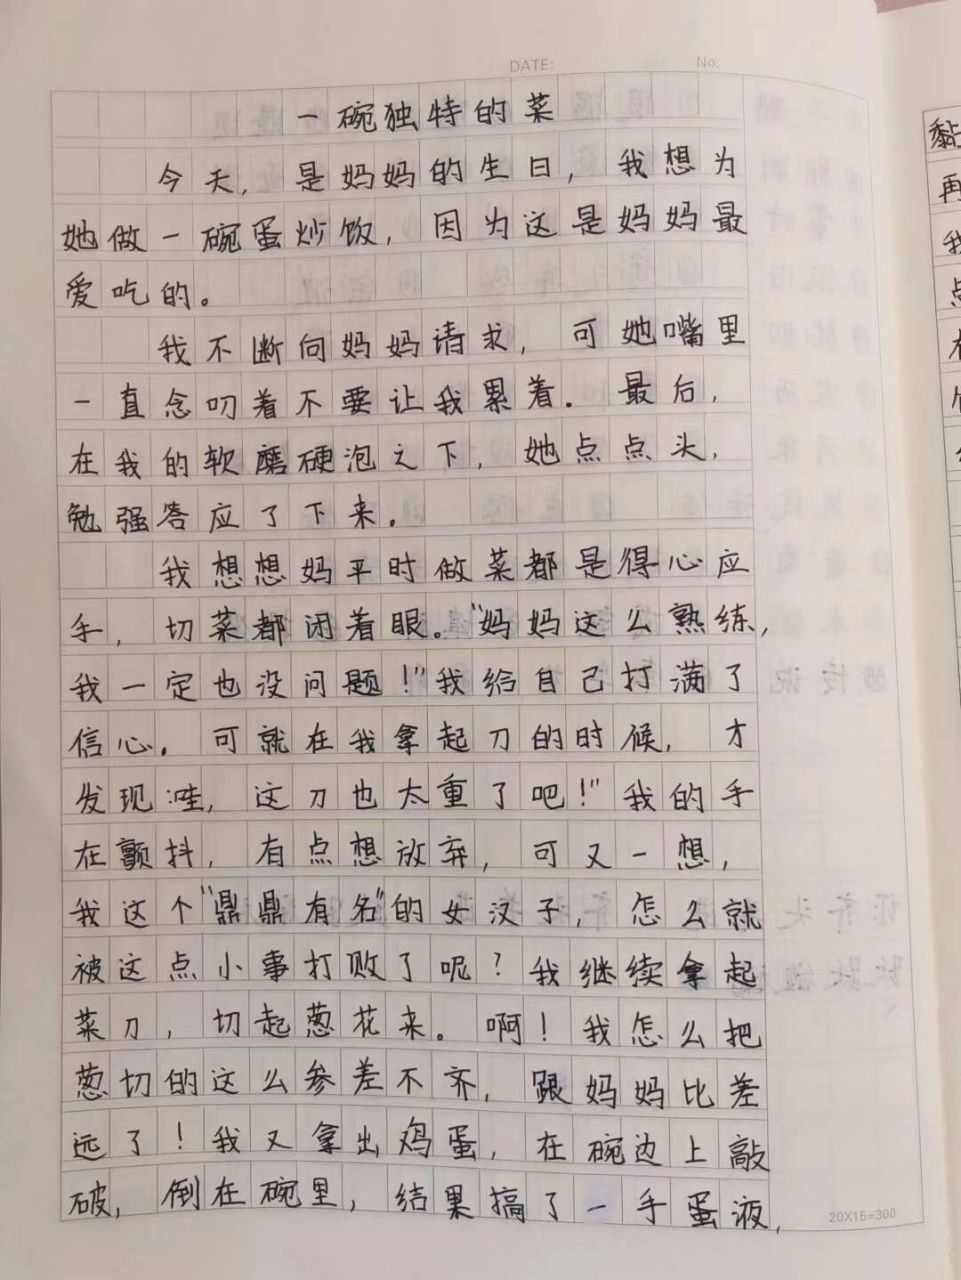 DATE:
No.
一碗独特的菜
今天，是妈妈的生日，我想为
她做一碗蛋炒饭，因为这是妈妈最
爱吃的。
我不断向妈妈请求，可她嘴里
一直念叨着不要让我累着。最后，
在我的软磨硬泡之下，她点点头，
勉强答应了下来。
我想想妈平时做菜都是得心应
手，切菜都闭着眼。“妈妈这么熟练，
我一定也没问题！”我给自己打满了
信心。可就在我拿起刀的时候，才
发现:哇，这刀也太重了吧！”我的手
在颤抖，有点想放弃，可又一想，
我这个“鼎鼎有名”的女汉子，怎么就
被这点小事打败了呢？我继续拿起
菜刀，切起葱花来。啊！我怎么把
葱切的这么参差不齐，跟妈妈比差
远了！我又拿出鸡蛋，在碗边上敲
破，倒在碗里，结果搞了一手蛋液，
20X15=300
黏
再
我
点